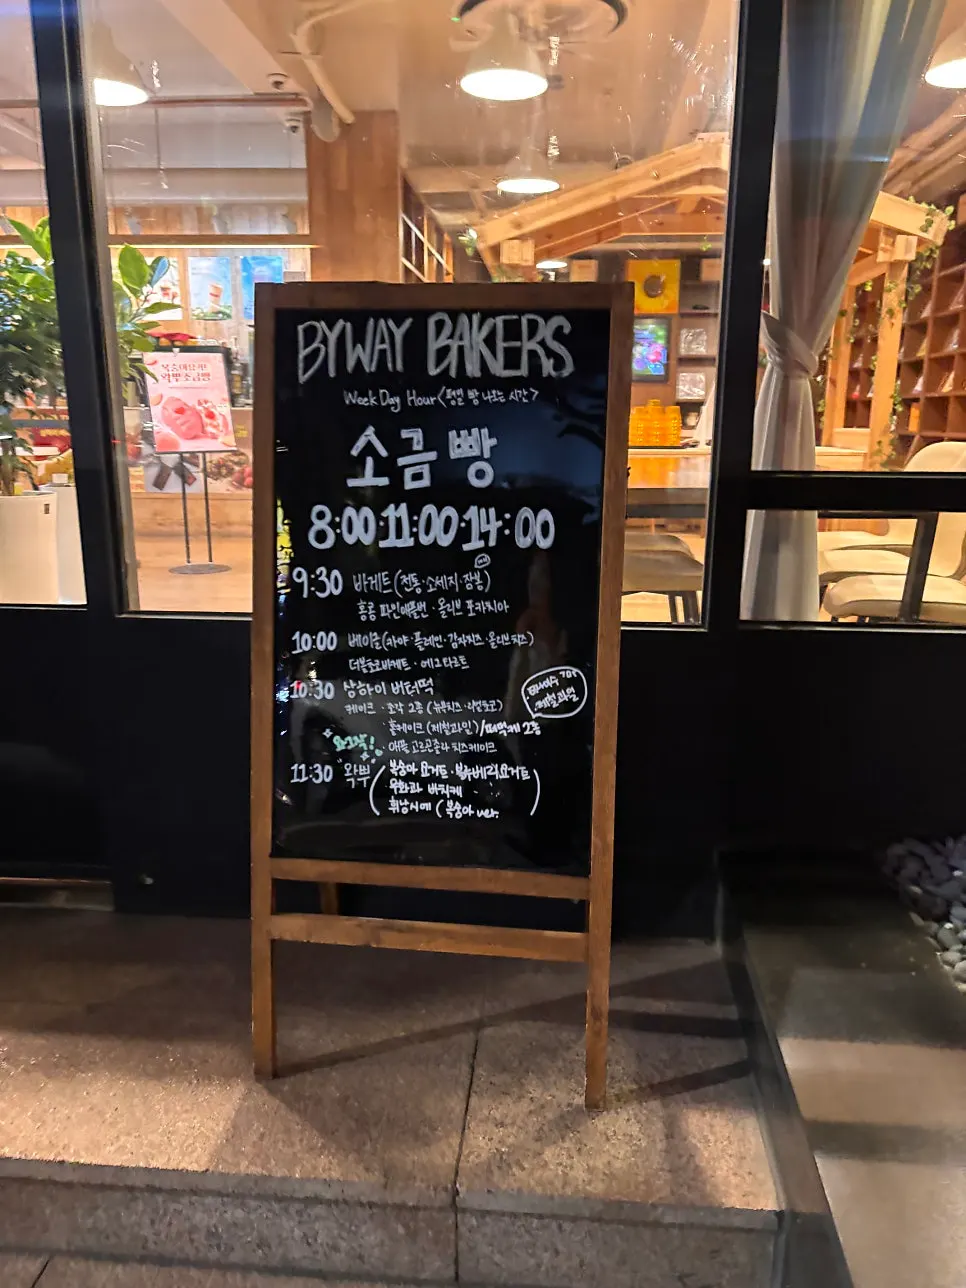 BYWAY BAKERS
Week Day Hour <평일 빵 나오는 시간>
소금빵
8:00·11:00·14:00
9:30 바게트 (전통·소세지·잠봉)
홍콩 파인애플번·올리브 포카치아
10:00 베이글(자야·플레인·감자치즈·올리브치즈)
더블초코바게트·에그타르트
10:30 상하이 버터떡
케이크·조각 2종 (뉴욕치즈·리얼초코)
제철과일
홀케이크 (제철과일) / 떠먹케 2종
애플 고르곤졸라 치즈케이크
11:30 "왁뿌" 복숭아 요거트·블루베리요거트
무화과 바치케
휘낭시에 (복숭아 ver.
복숭아요거트
왁뿌소금빵